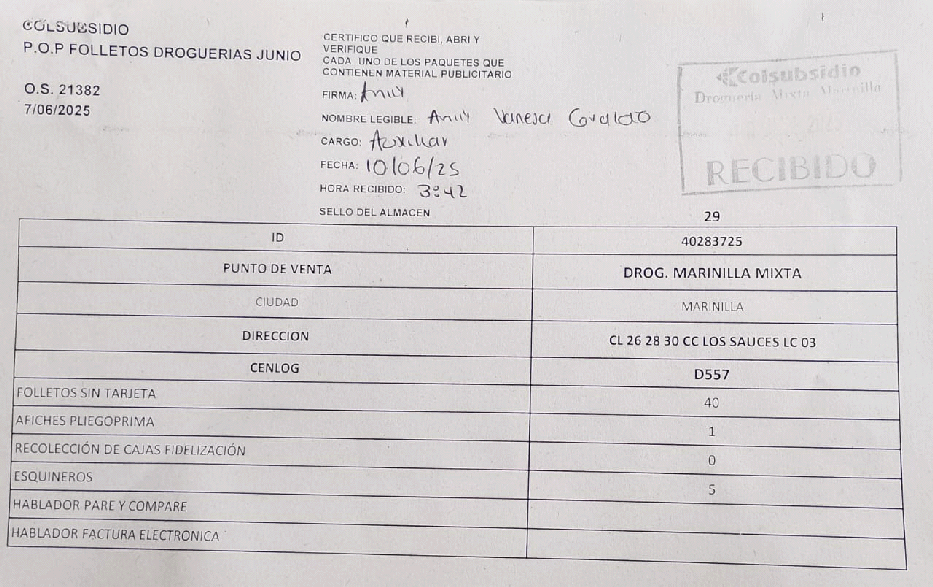 COLSUBSIDIO
P.O.P FOLLETOS DROGUERIAS JUNIO
O.S. 21382
7/06/2025
CERTIFICO QUE RECIBI, ABRI Y
VERIFIQUE
CADA UNO DE LOS PAQUETES QUE
CONTIENEN MATERIAL PUBLICITARIO
FIRMA:
NOMBRE LEGIBLE: Vanesa
CARGO: Auxiliar
FECHA: 10/06/25
HORA RECIBIDO: 3:42
SELLO DEL ALMACEN
Colsubsidio
Droguería Mixta Marinilla
RECIBIDO
29
ID 40283725
PUNTO DE VENTA DROG. MARINILLA MIXTA
CIUDAD MARINILLA
DIRECCION CL 26 28 30 CC LOS SAUCES LC 03
CENLOG D557
FOLLETOS SIN TARJETA 40
AFICHES PLIEGOPRIMA 1
RECOLECCIÓN DE CAJAS FIDELIZACIÓN 0
ESQUINEROS 5
HABLADOR PARE Y COMPARE
HABLADOR FACTURA ELECTRONICA